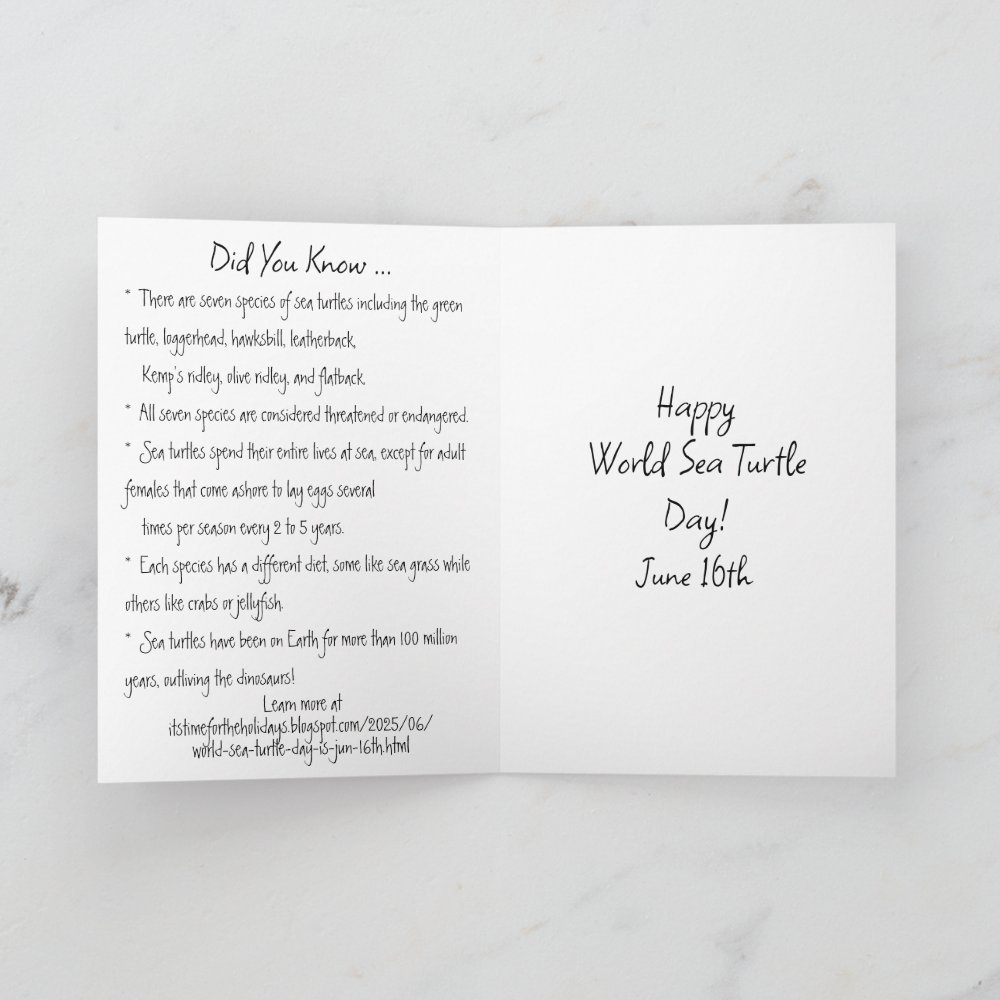 Did You Know ...
* There are seven species of sea turtles including the green
turtle, loggerhead, hawksbill, leatherback,
Kemp's ridley, olive ridley, and flatback.
* All seven species are considered threatened or endangered.
* Sea turtles spend their entire lives at sea, except for adult
females that come ashore to lay eggs several
times per season every 2 to 5 years.
* Each species has a different diet, some like sea grass while
others like crabs or jellyfish.
* Sea turtles have been on Earth for more than 100 million
years, outliving the dinosaurs!
Learn more at
itstimefortheholidays.blogspot.com/2025/06/
world-sea-turtle-day-is-jun-16th.html
Happy
World Sea Turtle
Day!
June 16th